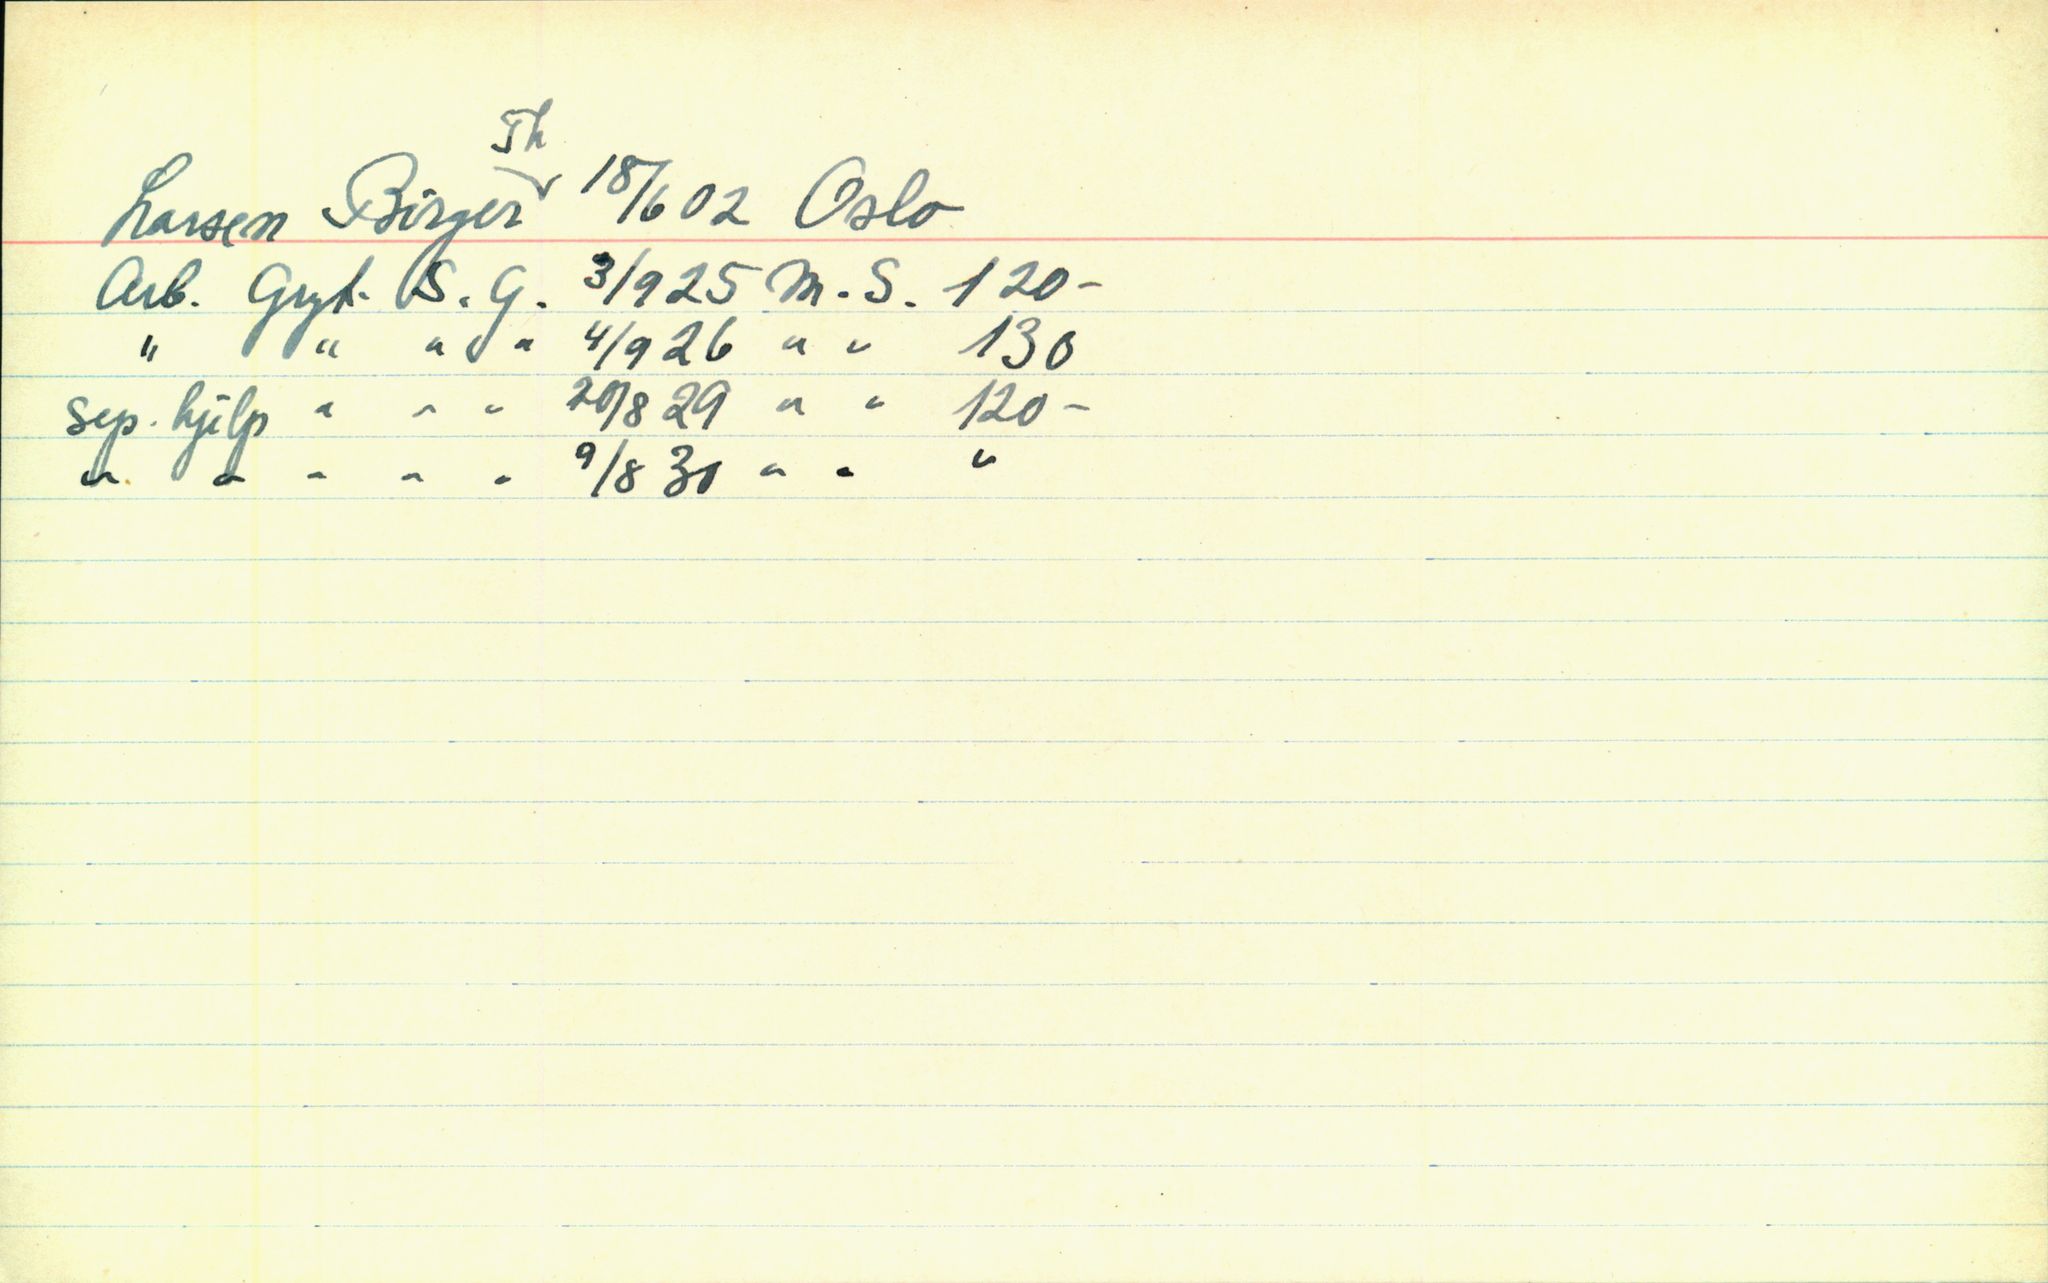 Larsen Birger Th 18/6 02 Oslo
Arb. Gryt. S. G. 3/9 25 M. S. 120-
" " " " 4/9 26 " " 130
Sep. hjelp " " " 20/8 29 " " 120-
" " " " " 9/8 30 " " "